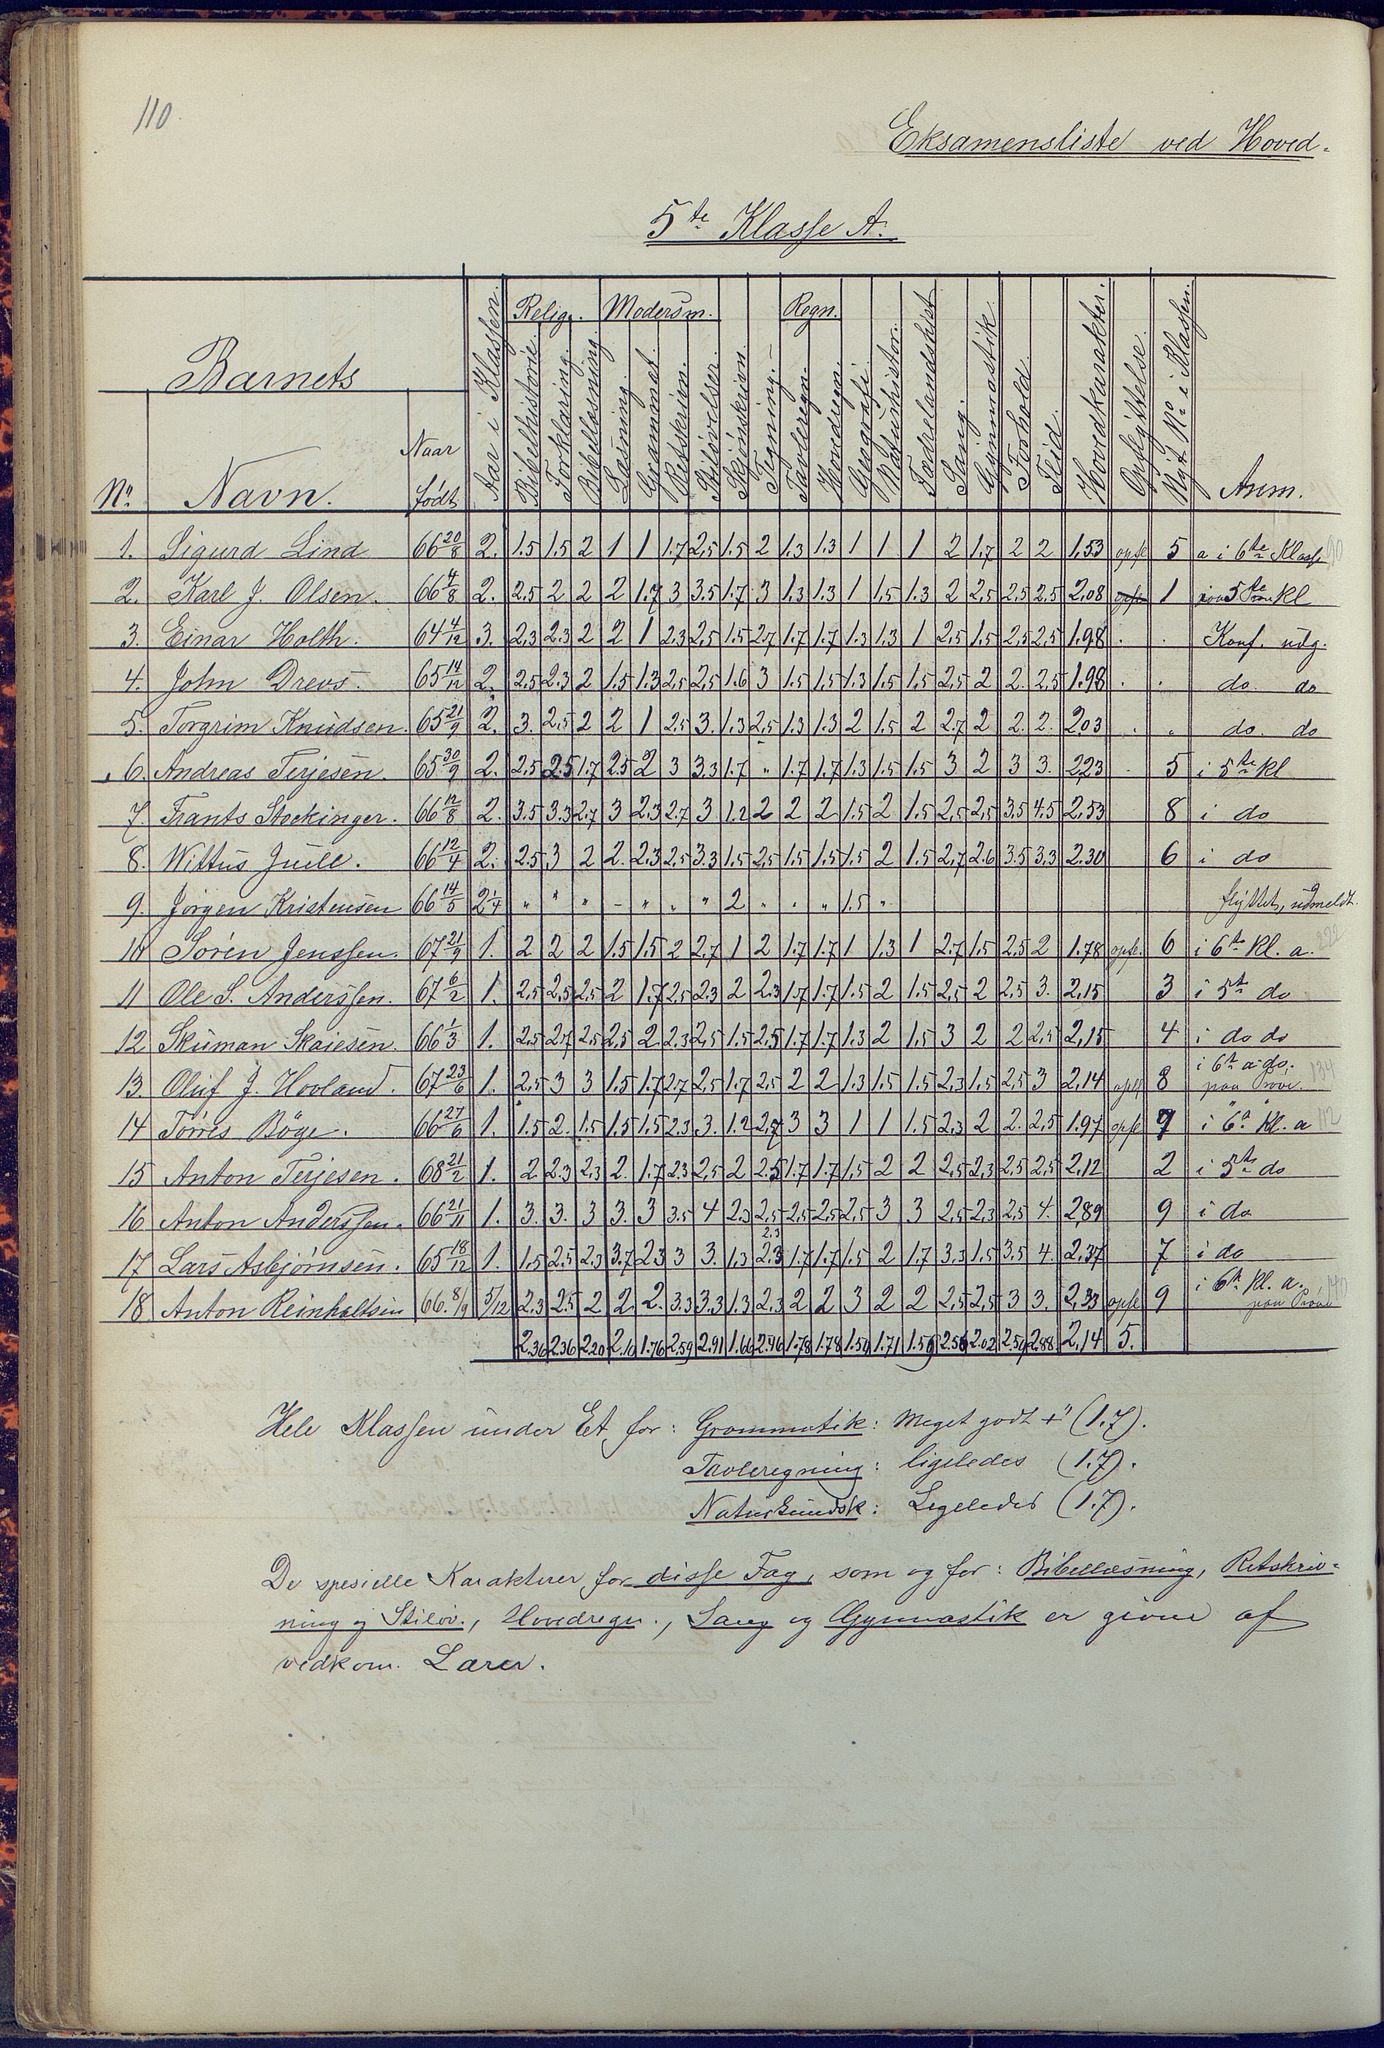 110
Eksamensliste ved Hoved-
5te Klasse A.
Barnets
No. Navn. Naar født
Aar i Klassen.
Relig. Modersm. Regn.
Bibelhistorie. Forklaring. Bibellæsning. Læsning. Grammat. Retskrivn. Stiløvelser. Skjönskrivn. Tegning. Tavleregn. Hovedregn. Geografi. Naturhistor. Fædrelandshist. Sang. Gymnastik. Forhold. Flid. Hovedkarakter. Opflyttelse. Nyt No. i Klassen. Anm.
1. Sigurd Lind 66 20/8 2. 1.5 1.5 2 1 1 1.7 2,5 1.5 2 1.3 1.3 1 1 1 2 1.7 2 2 1.53 opfl 5 a i 6te Klasse
2. Karl J. Olsen. 66 4/8 2. 2.5 2 2 2 1.7 3 3.5 1.7 3 1.3 1.3 1 1.5 1.3 2 2,5 2,5 2,5 2,08 opfl 1 5te kl
3. Einar Holth. 64 4/12 3. 2.3 2.3 2 2 1 2.3 2,5 1.5 2.7 1.7 1.7 1.3 1.3 1 2,5 1.5 2,5 2,5 1.98 . . Konf. udg.
4. John Drevs. 65 14/12 2. 2.5 2.3 2 1.5 1.3 2.5 2,5 1.6 3 1.5 1.5 1.3 1.5 1.5 2,5 2 2. 2,5 1.98 . . do. do
5. Torgrim Knudsen. 65 21/9 2. 3. 2,5 2 2 1 2.5 3. 1.3 2,5 1.3 1.3 2 1.5 2 2.7 2 2. 2. 2.03 . " do. do
6. Andreas Terjesen. 65 30/9 2. 2.5 2.5 1.7 2.5 2 3 3.3 1.7 " 1.7 1.7 1.3 1.5 1.5 3 2 3 3. 2,23 . 5 i 5te kl
7. Frants Stockinger. 66 12/8 2. 3.5 3.3 2.7 3 2.3 2.7 3 1.2 2 2 2 1.5 2 1.5 2,5 2,5 3.5 4.5 2,53 8 i do
8. Wittus Juell. 66 12/4 2. 2.5 3 2 2. 2.3 2.5 3.3 1.5 2,5 1.5 1.5 1.5 2 1.5 2,7 2.6 3.5 3.3 2.30 6 i do
9. Jörgen Kristensen 66 14/5 2 1/4 " " " - " " " 2 " " " 1.5 " flyttet, udmeldt.
10 Sörén Jenssen. 67 21/9 1. 2 2 2 1.5 1.5 2 2,7 1 2 1.7 1.7 1 1.3 1 2.7 1.5 2.5 2 1.78 opfl. 6 i 6te kl. a. 222
11 Ole S. Anderssen. 67 6/2 1. 2,5 2,5 2,5 2 1.7 2,5 2.3 2 2.3 1.7 1.7 1.5 2 1.5 2,5 2 2,5 3. 2,15 3 i 5te do
12. Skuman Skaiesen. 66 1/3 1. 2,5 2.7 2,5 2,5 2 2.3 2,5 1.5 2,5 1.7 1.7 1.3 2 1.5 3 2 2 2,5 2,15 4 i do do
13. Oluf J. Hovland. 67 23/6 1. 2,5 3 3 1.5 1.7 2.7 2,5 1.7 2,5 2 2 1.3 1.5 1.5 2.3 1.5 2,5 3 2,14 opfl 8 i 6te a do. paa Prøve. 134
14 Törris Böge. 66 27/6 1. 1.5 2. 1.5 1.5 1.5 2.3 3. 1.2 2,7 3 3 1 1 1.5 2.3 2 2. 2,5 1.97 opfl 7 i 6te kl. a 112
15 Anton Terjesen. 68 21/2 1. 2 2.3 2.3 2. 1.7 2.3 2,5 2 2.5 1.7 1.7 1.5 2 2 2,5 2.3 2,5 2,5 2,12 2 i 5te do
16 Anton Anderssen. 66 21/11 1. 3. 3. 3 3. 3 3.5 4 2.3 2,5 2,5 2,5 2,5 3 3 2,5 2.3 2,5 4. 2,89 9 i do
17 Lars Asbjørnsen. 65 18/12 1. 1.5 2.5 2.3 3.7 2.3 3 3. 1.3 2.3 2.3 1.7 1.7 1.5 2 1.7 3.3 1.5 3.5 4. 2,37 7 i do
18. Anton Reinholtsen 66. 8/9 5/12 2.3 2.5 2 2. 2. 3.3 3.3 1.3 2.3 2 2 3 2 2 2,5 2,5 3 3. 2,33 opfl 9 i 6te kl. a. paa Prøve 140
2.36 2.36 2.20 2.16 1.76 2.59 2.91 1.66 2.46 1.78 1.78 1.59 1.71 1.59 2.56 2.02 2.59 2.88 2,14 5.
Hele Klassen under Et, for: Grammatik: Meget godt + (1.7).
Tavleregning: ligeledes (1.7).
Naturkundsk: Ligeledes (1.7).
De spesielle Karakterer for disse Fag, som og for: Bibellæsning, Retskriv-
ning og Stiløv., Hovedregn., Sang og Gymnastik er givne af
vedkom. Lærer.